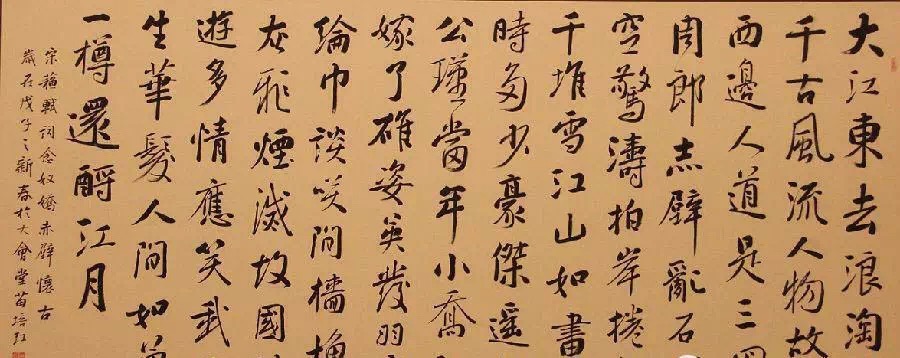 大江東去浪淘
千古風流人物故
西邊人道是三國
周郎赤壁亂石
空驚濤拍岸捲
千堆雪江山如畫
時多少豪傑遥
公瑾當年小喬
嫁了雄姿英發羽
綸巾談笑間檣櫓
灰飛煙滅故國
遊多情應笑我
生華髮人間如夢
一樽還酹江月
宋蘇軾詞念奴嬌赤壁懷古
歲在戊子之新春於大會堂苗培紅